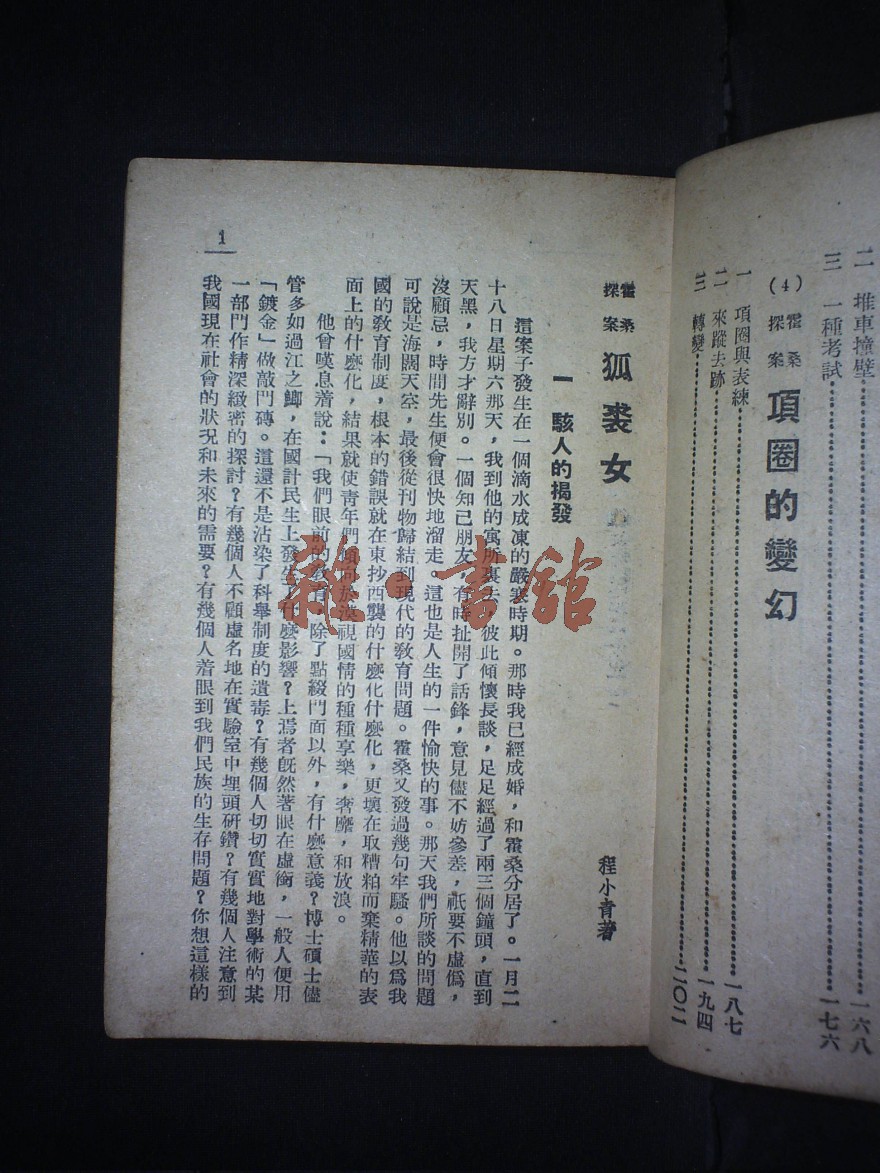 二 推車撞壁……一六八
三 一種考試……一七六
(4) 霍桑探案 項圈的變幻
一 項圈與表練……一八七
二 來蹤去跡……一九四
三 轉變……二〇二
霍桑探案 狐裘女
程小青著
一 駭人的揭發
這案子發生在一個滴水成凍的嚴寒時期。那時我已經成婚,和霍桑分居了。一月二
十八日星期六那天,我到他的寓所裏去,彼此傾懷長談,足足經過了兩三個鐘頭,直到
天黑,我方才辭別。一個知己朋友,有時扯開了話鋒,意見儘不妨參差,祇要不虛僞,
沒顧忌,時間先生便會很快地溜走。這也是人生的一件愉快的事。那天我們所談的問題
可說是海闊天空,最後從刊物歸結到現代的敎育問題。霍桑又發過幾句牢騷。他以爲我
國的敎育制度,根本的錯誤就在東抄西襲的什麼化什麼化,更壞在取糟粕而棄精華的表
面上的什麼化,結果就使青年們傾向於漠視國情的種種享樂,奢靡,和放浪。
他曾嘆息着說:「我們眼前的敎育,除了點綴門面以外,有什麼意義?博士碩士儘
管多如過江之鯽,在國計民生上發生了什麼影響?上焉者旣然著眼在虛銜,一般人便用
「鍍金」做敲門磚。這還不是沾染了科舉制度的遺毒?有幾個人切切實實地對學術的某
一部門作精深緻密的探討?有幾個人不顧虛名地在實驗室中埋頭研鑽?有幾個人注意到
我國現在社會的狀況和未來的需要?有幾個人着眼到我們民族的生存問題?你想這樣的
1
雜·書館